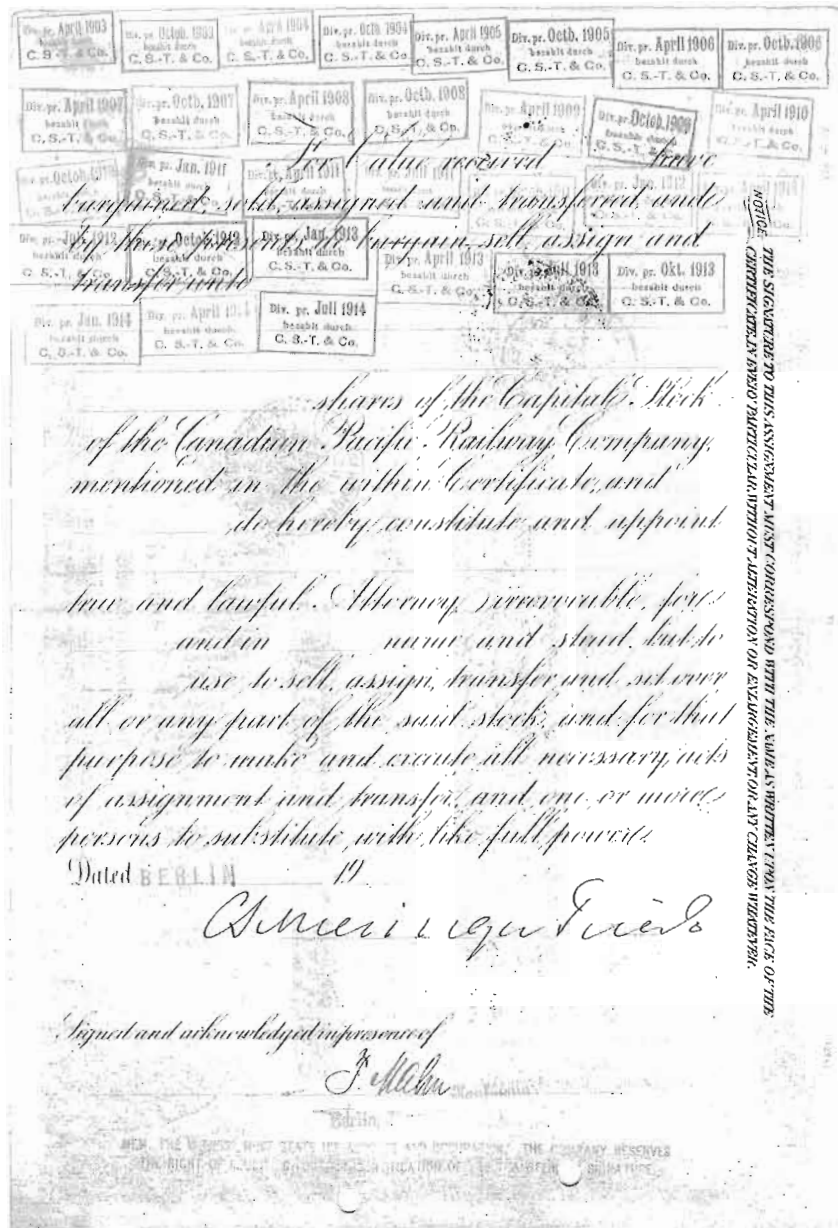 Div. pr. April 1903
bezahlt durch
C. S.-T. & Co.
Div. pr. Octob. 1903
bezahlt durch
C. S.-T. & Co.
Div. pr. April 1904
bezahlt durch
C. S.-T. & Co.
Div. pr. Octb. 1904
bezahlt durch
C. S.-T. & Co.
Div. pr. April 1905
bezahlt durch
C. S.-T. & Co.
Div. pr. Octb. 1905
bezahlt durch
C. S.-T. & Co.
Div. pr. April 1906
bezahlt durch
C. S.-T. & Co.
Div. pr. Octb. 1906
bezahlt durch
C. S.-T. & Co.
Div. pr. April 1907
bezahlt durch
C. S.-T. & Co.
Div. pr. Octb. 1907
bezahlt durch
C. S.-T. & Co.
Div. pr. April 1908
bezahlt durch
C. S.-T. & Co.
Div. pr. Octb. 1908
bezahlt durch
C. S.-T. & Co.
Div. pr. April 1909
Div. pr. Octob. 1909
Div. pr. April 1910
bezahlt durch
C. S.-T. & Co.
Div. pr. Jan. 1911
April 1911
Juli 1911
Div. pr. Jan. 1912
Juli 1912
C. S.-T. & Co.
Octob. 1912
C. S.-T. & Co.
Div. pr. Jan. 1913
bezahlt durch
C. S.-T. & Co.
Div. pr. April 1913
bezahlt durch
C. S.-T. & Co.
Div. pr. Juli 1913
bezahlt durch
C. S.-T. & Co.
Div. pr. Okt. 1913
bezahlt durch
C. S.-T. & Co.
Div. pr. Jan. 1914
bezahlt durch
C. S.-T. & Co.
Div. pr. April 1914
bezahlt durch
C. S.-T. & Co.
Div. pr. Juli 1914
bezahlt durch
C. S.-T. & Co.
For Value received have
bargained, sold, assigned and transferred, and
by these presents, do bargain, sell, assign and
transfer unto
shares of the Capital Stock
of the Canadian Pacific Railway Company,
mentioned in the within Certificate, and
do hereby constitute and appoint
true and lawful Attorney, irrevocable, for
and in name and stead, but to
use to sell, assign, transfer and set over
all or any part of the said stock, and for that
purpose to make and execute all necessary acts
of assignment and transfer, and one or more
persons to substitute with like full power.
Dated BERLIN 19
Signed and acknowledged in presence of
Berlin,
NOTICE: THE SIGNATURE TO THIS ASSIGNMENT MUST CORRESPOND WITH THE NAME AS WRITTEN UPON THE FACE OF THE
CERTIFICATE IN EVERY PARTICULAR WITHOUT ALTERATION OR ENLARGEMENT OR ANY CHANGE WHATEVER.